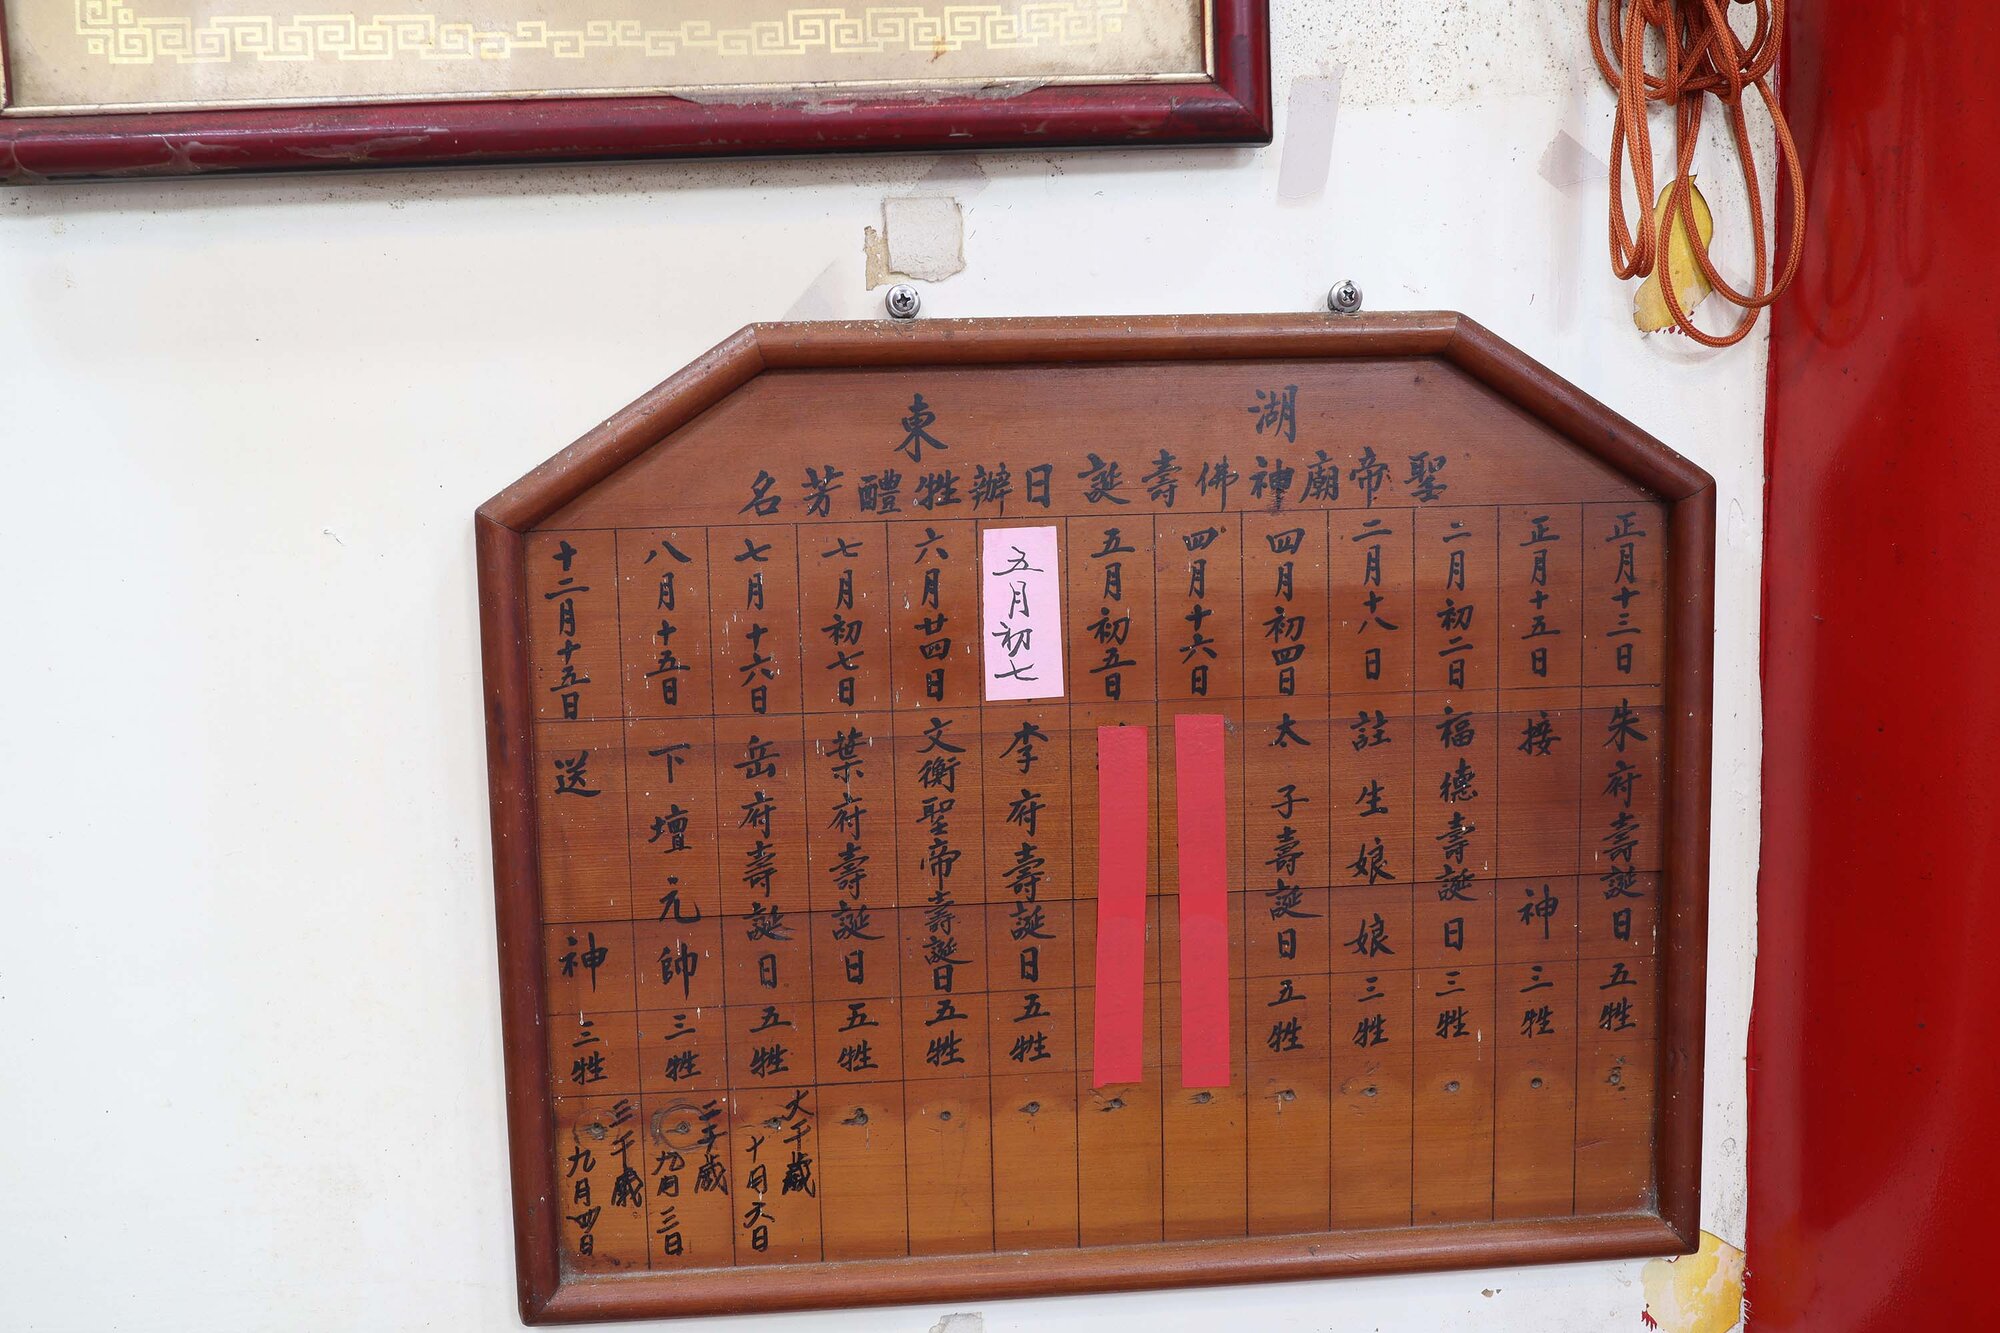 湖東
聖帝廟神佛壽誕日辦牲醴芳名
正月十三日 朱府壽誕日 五牲
正月十五日 接神 三牲
二月初二日 福德壽誕日 三牲
二月十八日 註生娘娘 三牲
四月初四日 太子壽誕日 五牲
四月十六日
五月初五日
五月初七 李府壽誕日 五牲
六月廿四日 文衡聖帝壽誕日 五牲
七月初七日 葉府壽誕日 五牲
七月十六日 岳府壽誕日 五牲
大千歲 十月六日
八月十五日 下壇元帥 三牲
二千歲 九月三日
十二月十五日 送神 三牲
三千歲 九月四日